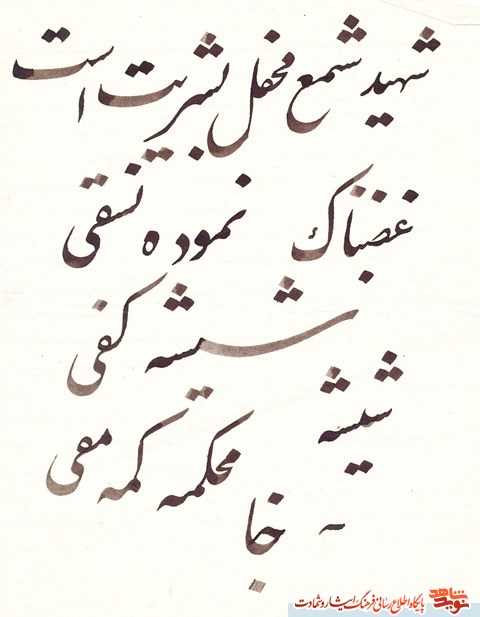 شهید شمع محفل بشریت است
غضبناک نموده نسقی
شسشه کفی
شیشه
محکمه کمه مفی
خا
نوید شاهد پایگاه اطلاع رسانی فرهنگ ایثار و شهادت